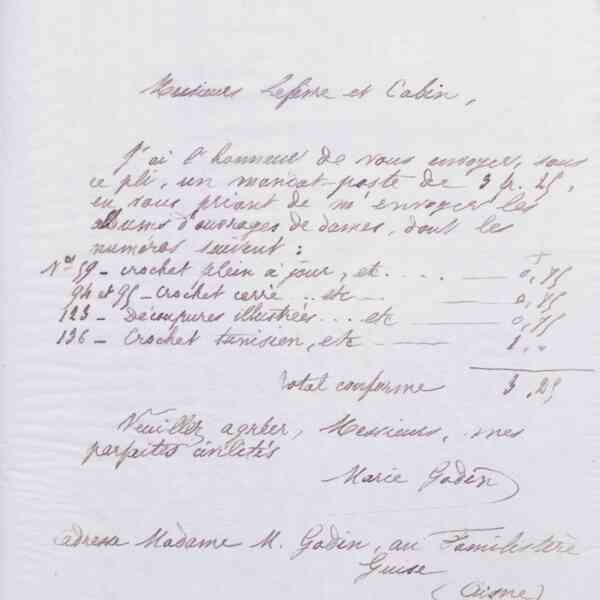 Messieurs Lefèvre et Cabin,
J'ai l'honneur de vous envoyer, sous
ce pli, un mandat-poste de 3 fr. 25,
en vous priant de m'envoyer les
albums d'ouvrages de dames, dont les
numéros suivent :
Nos 59 - crochet plein à jour, etc. . . . . — 0,75
94 et 95 - Crochet carré . . etc — 0,75
123 - Découpures illustrées . . . etc — 0,75
136 - Crochet tunisien, etc — 1 , "
Total conforme 3,25
Veuillez, agréer, Messieurs, mes
parfaites civilités
Marie Godin
adresse Madame M. Godin, au Familistère
Guise
(Aisne)